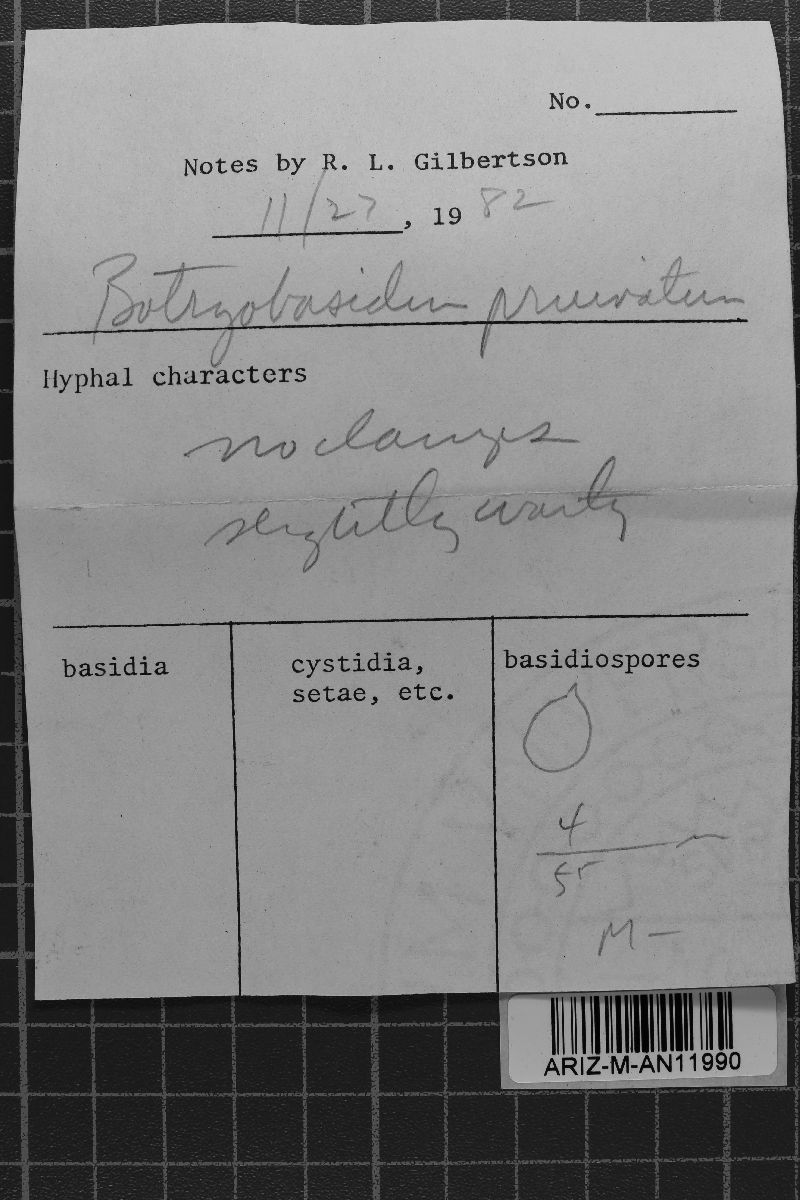 No.
Notes by R. L. Gilbertson
11/27, 1982
Botryobasidium pruinatum
Hyphal characters
no clamps
slightly warty
basidia
cystidia,
setae, etc.
basidiospores
4
5
M –
ARIZ-M-AN11990